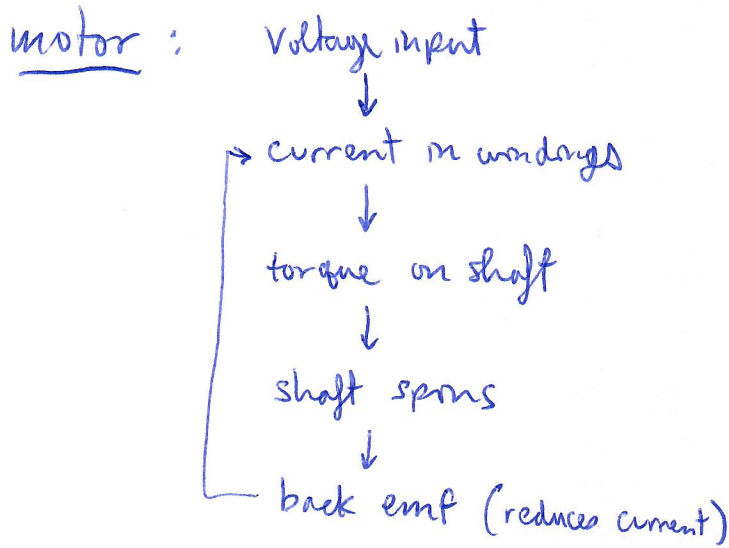 motor : Voltage input
current in windings
torque on shaft
shaft spins
back emf (reduces current)